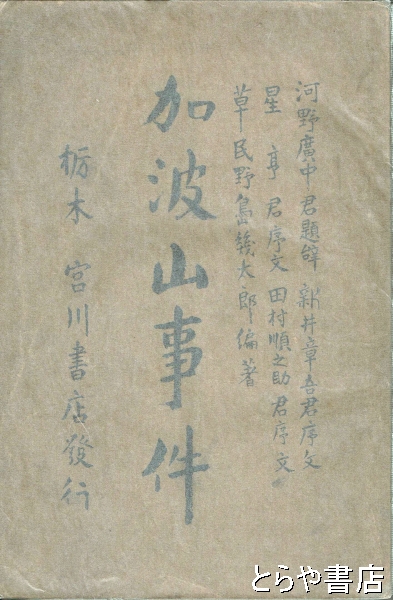 河野廣中君題辭 新井章吾君序文
星 亨 君序文 田村順之助君序文
草民野島幾太郎編著
加波山事件
栃木 宮川書店發行
とらや書店